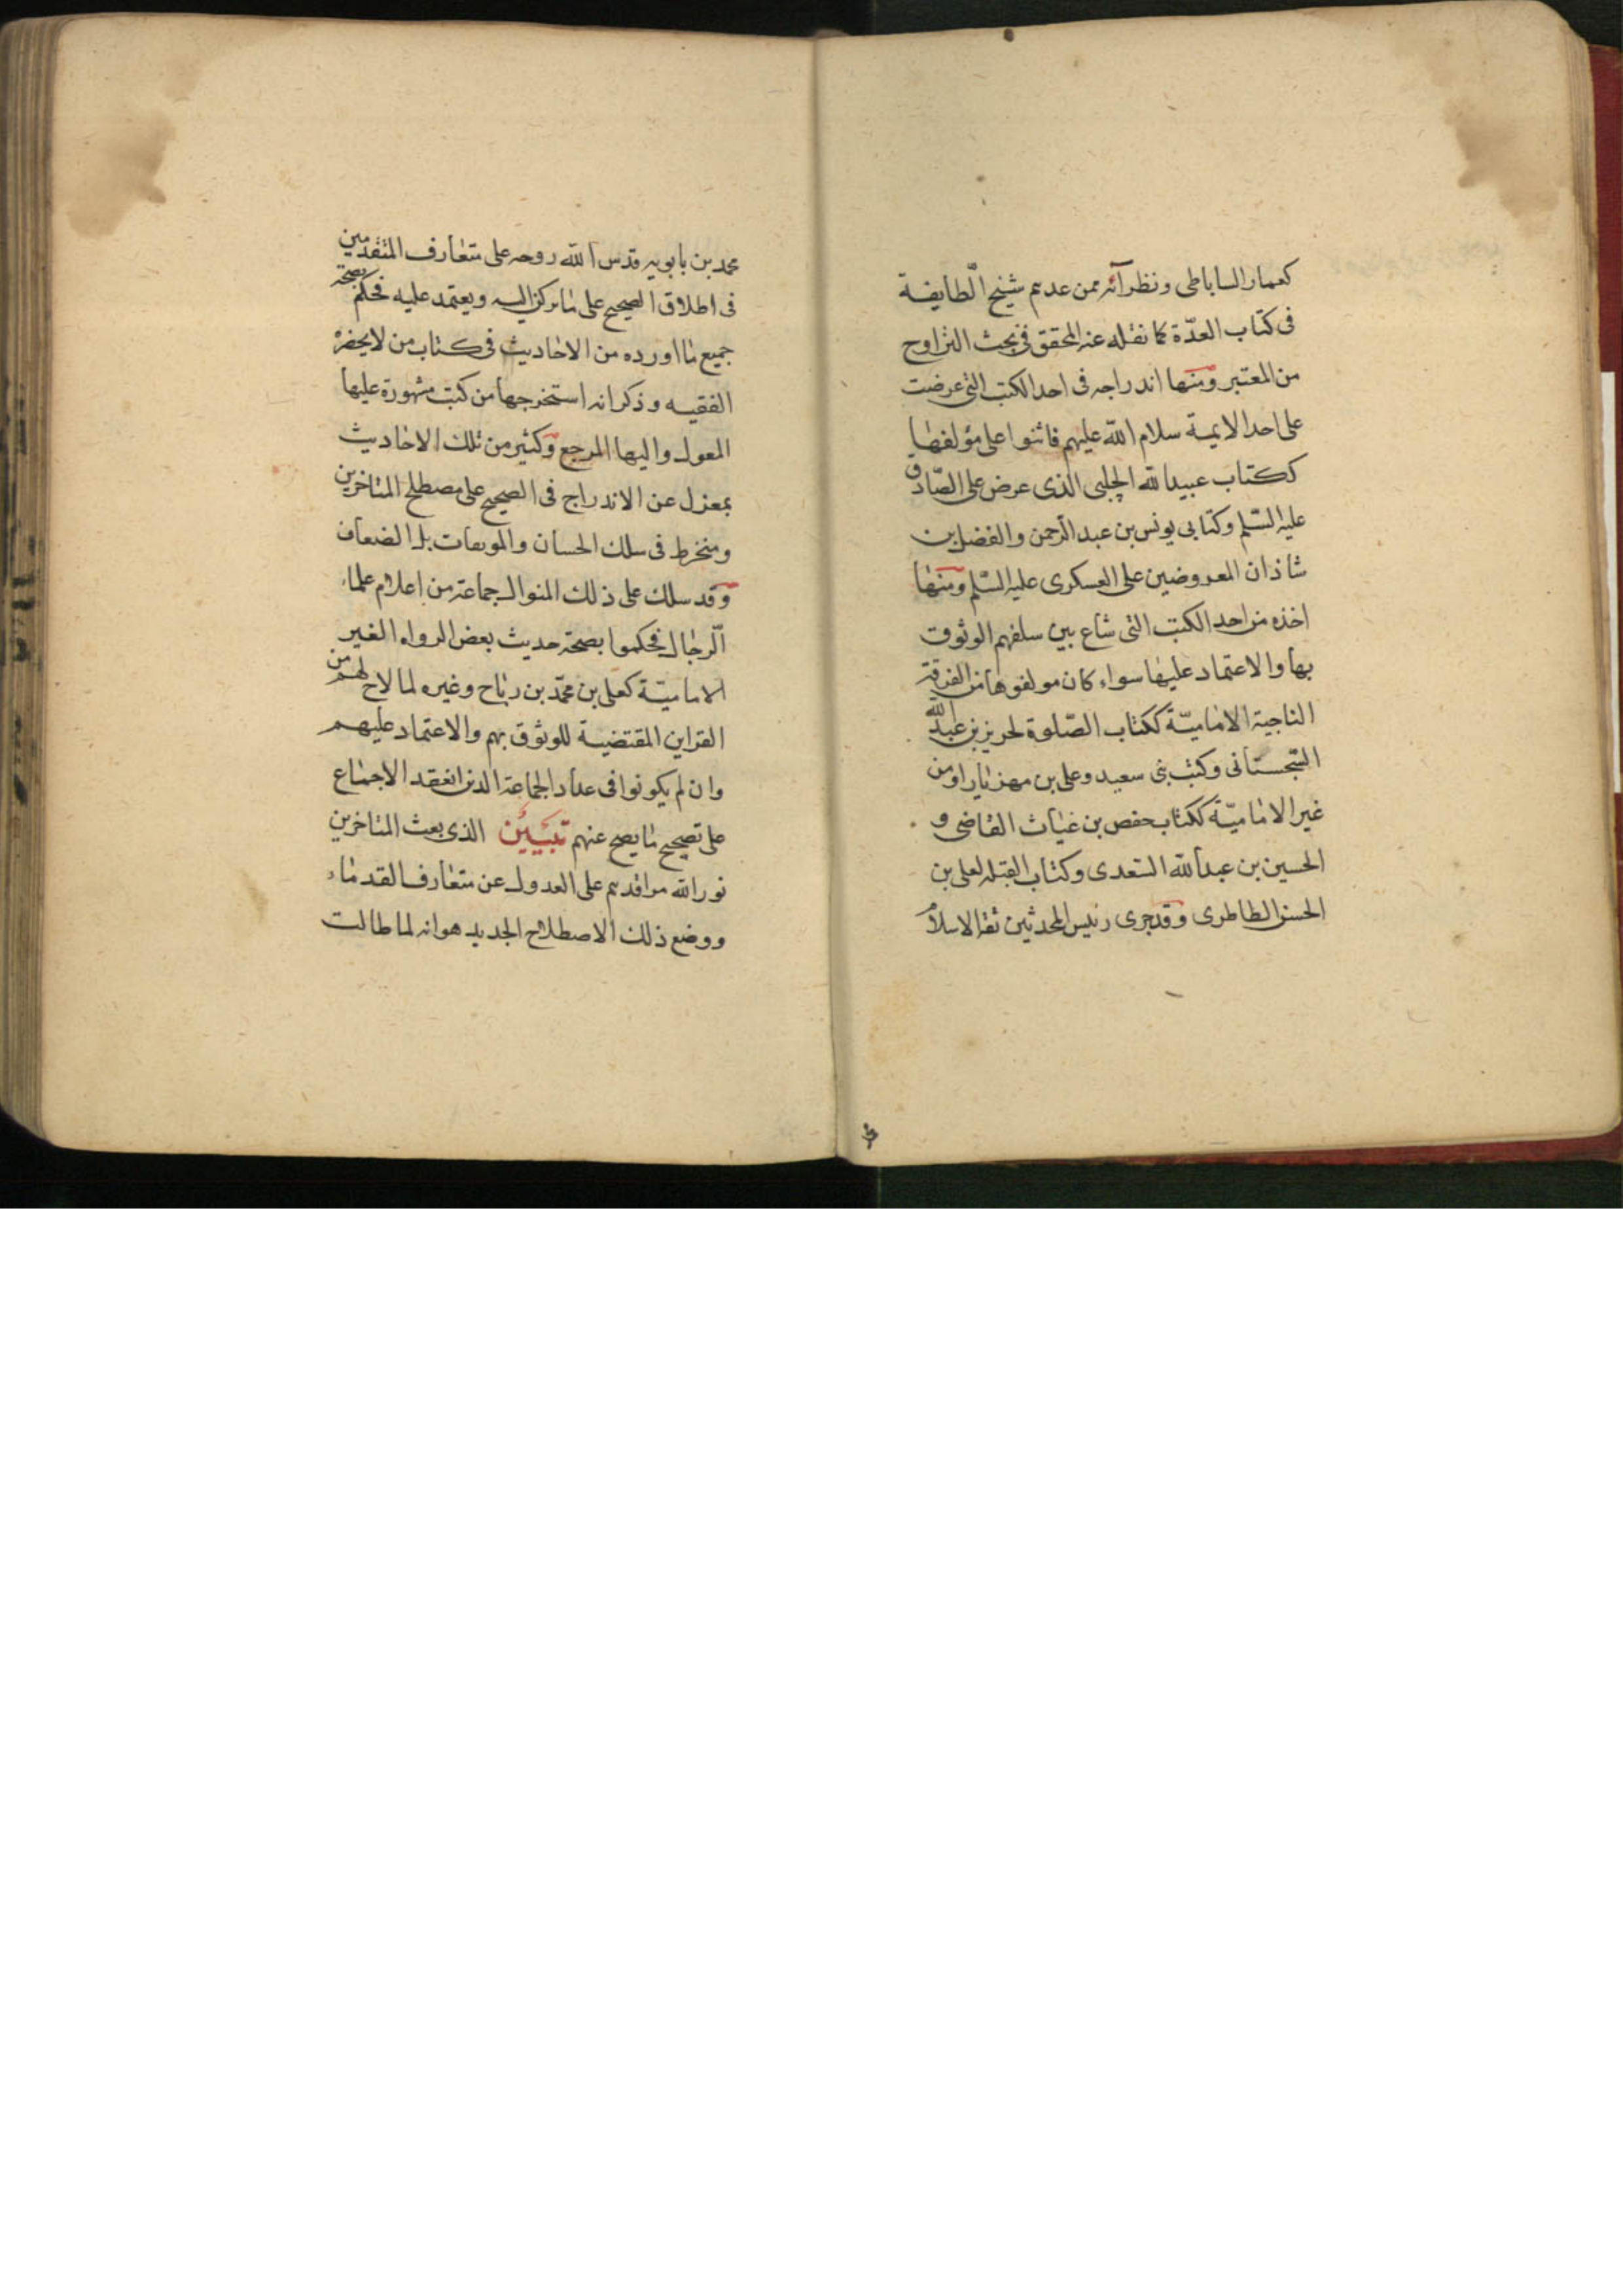 كعمار الساباطى ونظرآئه ممن عدهم شيخ الطايفة
فى كتاب العدّة كما نقله عنه المحقق فى بحث التراوح
من المعتبر ومنها اندراجه فى احد الكتب التى عرضت
على احد الايمة سلام الله عليهم فاثنوا على مؤلفها
ككتاب عبيد الله الحلبى الذى عرض على الصّادق
عليه السّلم وكتابى يونس بن عبد الرّحمن والفضل بن
شاذان المعروضين على العسكرى عليه السّلم ومنها
اخذه من احد الكتب التى شاع بين سلفهم الوثوق
بها والاعتماد عليها سواء كان مولفوها من الفرقة
الناجية الاماميّة ككتاب الصّلوة لحريز بن عبد الله
السّجستانى وكتب بنى سعيد وعلى بن مهزيار او من
غير الاماميّة ككتاب حفص بن غياث القاضى و
الحسين بن عبد الله السّعدى وكتاب القبله لعلى بن
الحسن الطاطرى وقد جرى رئيس المحدثين ثقة الاسلام
محمد بن بابويه قدس الله روحه على متعارف المتقدمين
فى اطلاق الصحيح على ما يركن اليه ويعتمد عليه فحكم بصحة
جميع ما اورده من الاحاديث فى كتاب من لا يحضره
الفقيه وذكر انه استخرجها من كتب مشهورة عليها
المعول واليها المرجع وكثير من تلك الاحاديث
بمعزل عن الاندراج فى الصحيح على مصطلح المتاخرين
ومنخرط فى سلك الحسان والموثقات بل الضعاف
وقد سلك على ذلك المنوال جماعة من اعلام علماء
الرّجال فحكموا بصحة حديث بعض الرواه الغير
الاماميّة كعلى بن محمّد بن رباح وغيره لما لاح لهم من
القراين المقتضية للوثوق بهم والاعتماد عليهم
وان لم يكونوا فى عداد الجماعة الذين انعقد الاجماع
على تصحيح ما يصح عنهم تبيين الذى بعث المتاخرين
نور الله مراقدهم على العدول عن متعارف القدماء
ووضع ذلك الاصطلاح الجديد هو انه لما طالت